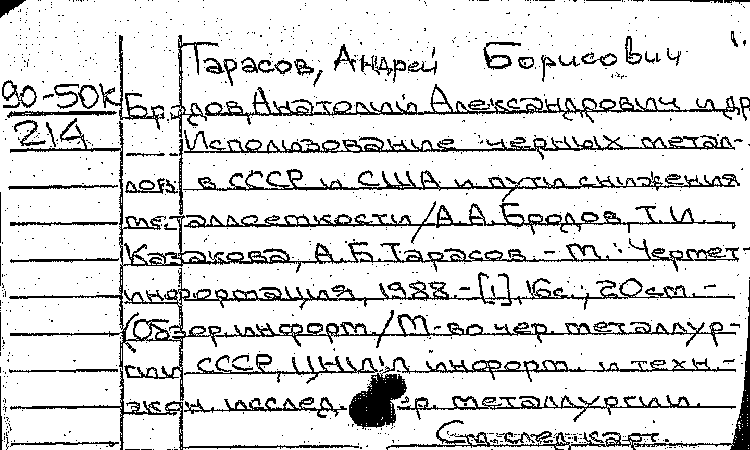 1.
Тарасов, Андрей Борисович
90-50К Бродов, Анатолий Александрович и др
214 Использование черных метал-
лов в СССР и США и пути снижения
металлоемкости/А.А.Бродов, Т.И.
Казакова, А.Б.Тарасов. - М.: Чермет-
информация, 1988. - [1], 16с.; 20см. -
(Обзор. информ./М-во чер. металлур-
гии СССР, ЦНИИ информ. и техн.-
экон. исслед. ер. металлургии.
См.след.карт.